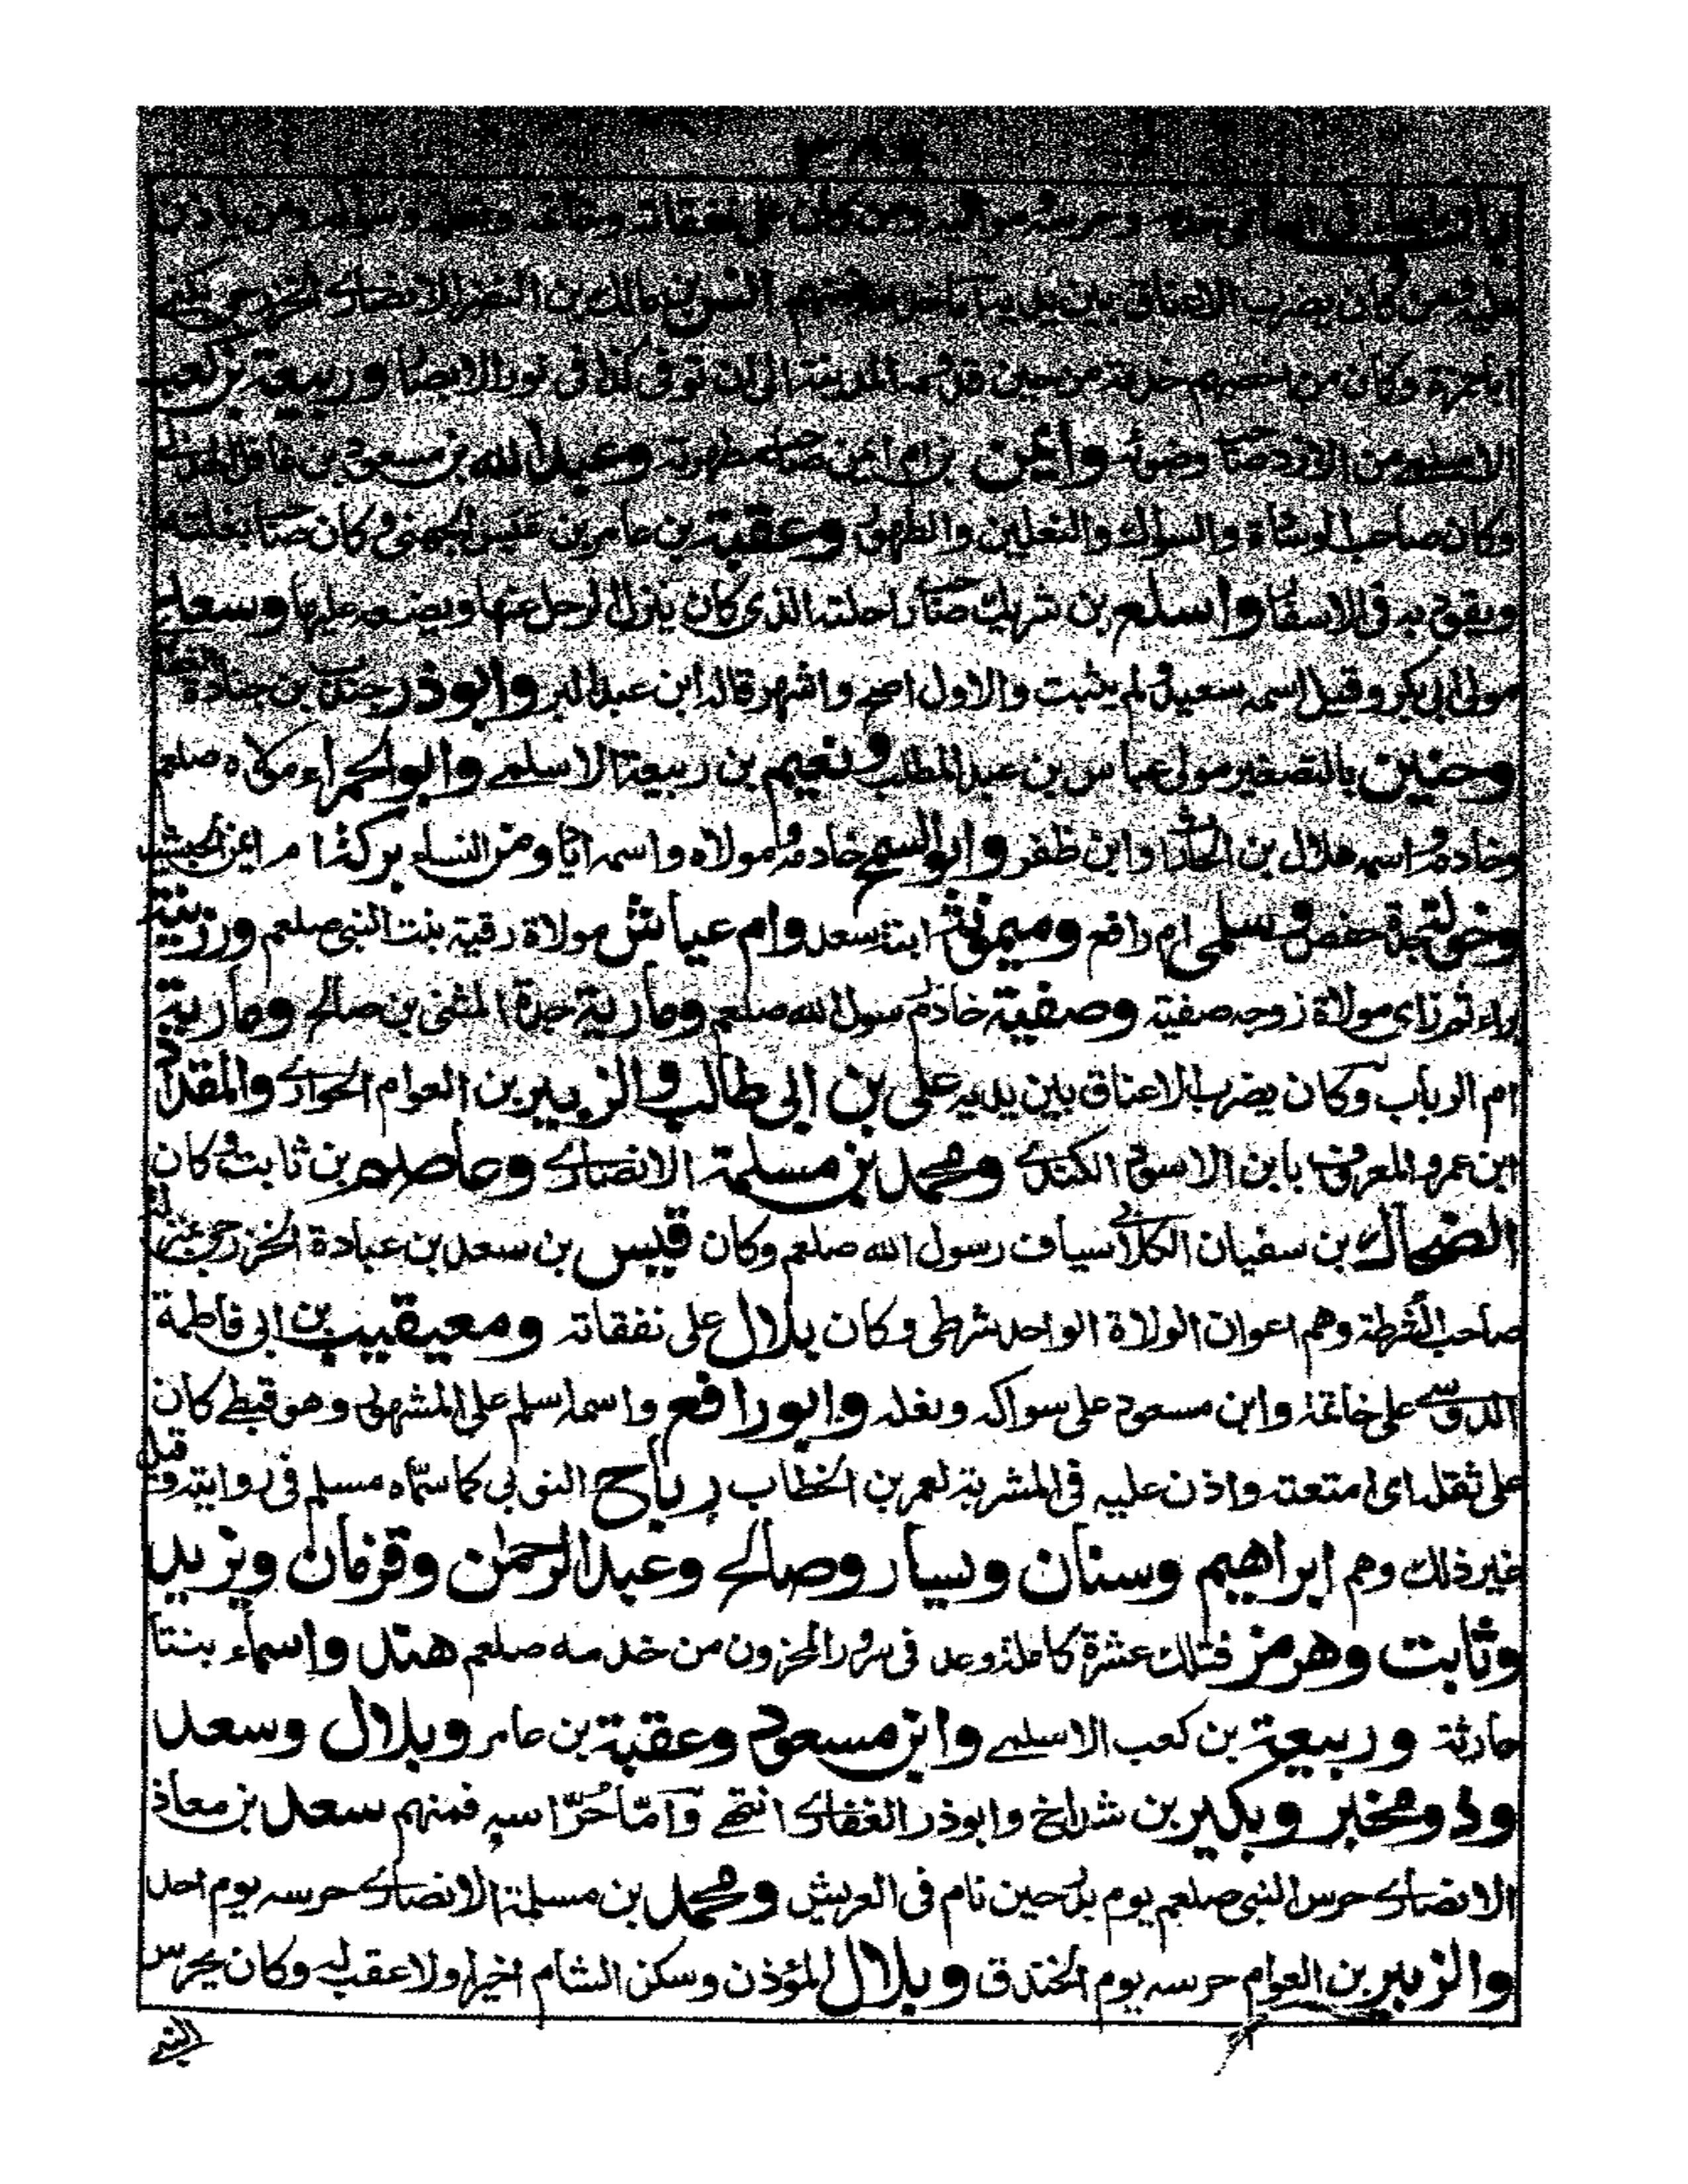 ٣٨٩
باب في خدمه وحرسه ومواليه ومن كان على نفقاته وخاتمه ونعله وسواكه ومن ياذن
عليه ومن كان يضرب الاعناق بين يديه انس بن مالك بن النضر الانصاري الخزرجي
ابا حمزة وكان من خدمه من حين قدم المدينة الى ان توفي كذا في نور الابصار وربيعة بن كعب
الاسلمي صاحب وضوئه وايمن بن ام ايمن صاحب مطهرته وعبدالله بن مسعود بن غافل الهذلي
وكان صاحب الوسادة والسواك والنعلين والطهور وعقبة بن عامر بن عبس الجهني وكان صاحب بغلته
ويقود به في الاسفار واسلع بن شريك صاحب راحلته الذي كان ينزل الرحل عنها ويضعه عليها وسعد
مولى ابي بكر وقيل اسمه سعيد ولم يثبت والاول اصح واشهر قاله ابن عبدالبر وابوذر جندب بن جنادة الغفاري
وحنين بالتصغير مولى عباس بن عبدالمطلب ونعيم بن ربيعة الاسلمي وابوالحمراء مولاه صلعم
وخادمه واسمه هلال بن الحارث وابن ظفر وابوالسمح خادمه ومولاه واسمه اياد ومن النساء بركة ام ايمن الحبشية
وخولة جدة حفص وسلمى ام رافع وميمونة ابنة سعد وام عياش مولاة رقية بنت النبي صلعم ورزينة
براء ثم زاي مولاة زوجه صفية وصفية خادم رسول الله صلعم ومارية جدة المثنى بن صالح ومارية
ام الرباب وكان يضرب الاعناق بين يديه علي بن ابي طالب والزبير بن العوام الحواري والمقداد
ابن عمرو المعروف بابن الاسود الكندي ومحمد بن مسلمة الانصاري وعاصم بن ثابت وكان
الضحاك بن سفيان الكلابي سياف رسول الله صلعم وكان قيس بن سعد بن عبادة الخزرجي عنده
صاحب الشرطة وهم اعوان الولاة الواحد شرطي وكان بلال على نفقاته ومعيقيب بن ابي فاطمة
الدوسي على خاتمه وابن مسعود على سواكه ونعله وابورافع واسمه اسلم على المشهور وهو قبطي كان
على ثقله اي امتعته واذن عليه في المشربة لعمر بن الخطاب رباح النوبي كما سماه مسلم في روايته وقيل
غير ذلك وهم ابراهيم وسنان ويسار وصالح وعبدالرحمن وقزمان ويزيد
وثابت وهرمز فتلك عشرة كاملة وعد في سرور المحزون من خدمه صلعم هند واسماء بنتا
حارثة وربيعة بن كعب الاسلمي وابن مسعود وعقبة بن عامر وبلال وسعد
وذومخبر وبكير بن شداخ وابوذر الغفاري انتهى واما حُرّاسه فمنهم سعد بن معاذ
الانصاري حرس النبي صلعم يوم بدر حين نام في العريش ومحمد بن مسلمة الانصاري حرسه يوم احد
والزبير بن العوام حرسه يوم الخندق وبلال المؤذن وسكن الشام اخيرا ولا عقب له وكان يحرس
النبي